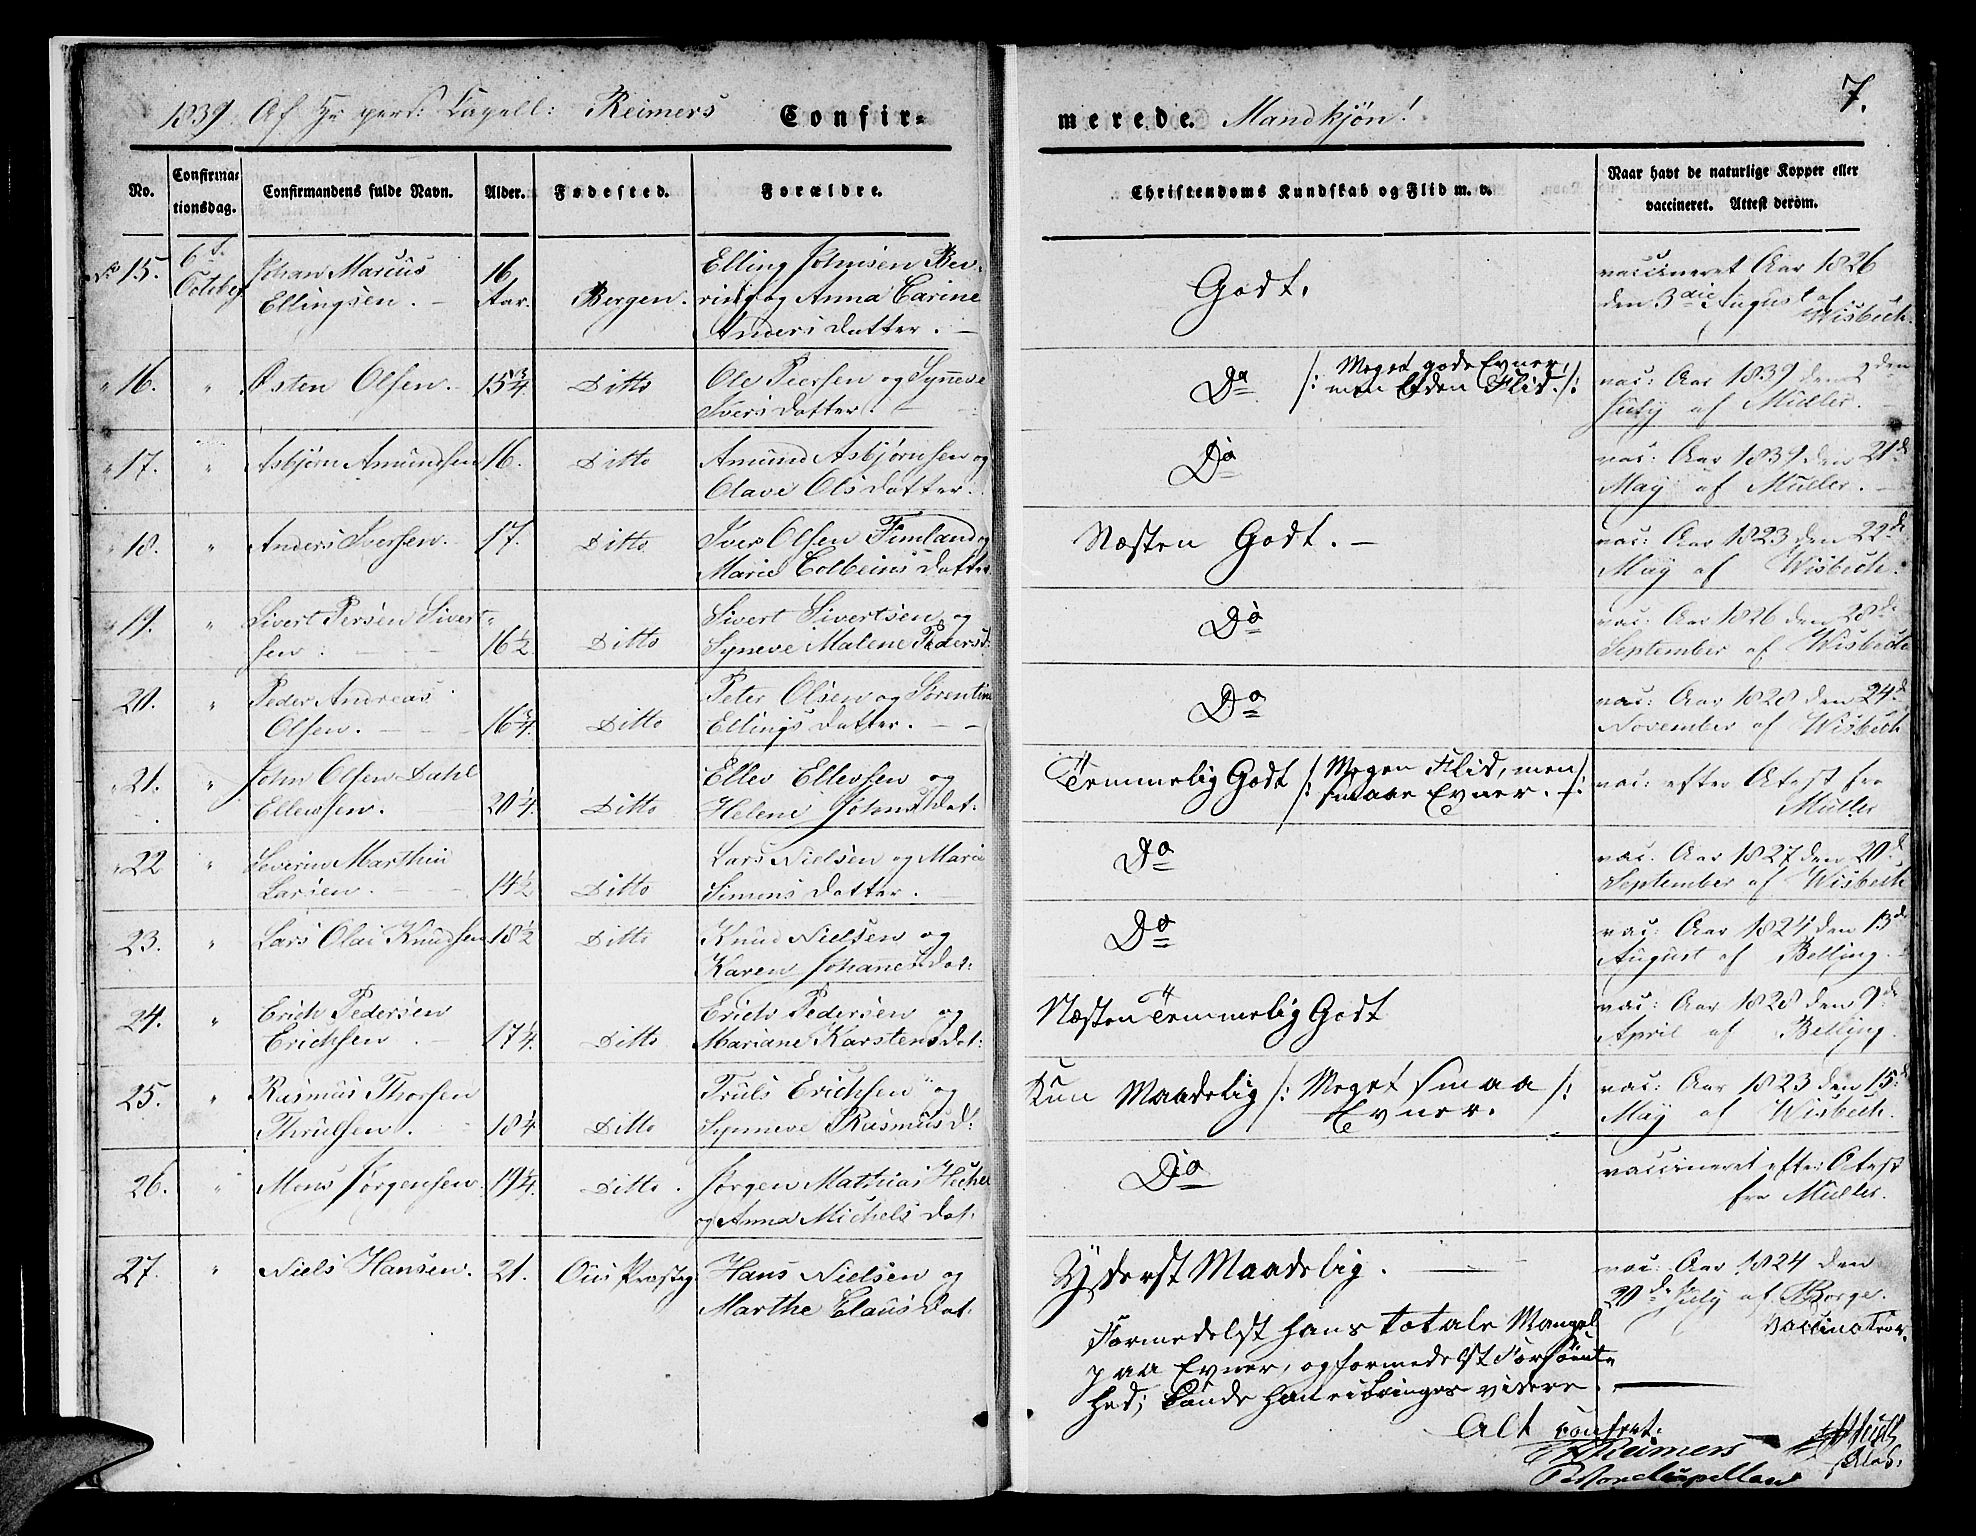 1839. Af Hr pers: Capell: Reimers Confir-
merede. Mandkjøn!
7.
No.
Confirma-
tionsdag.
Confirmandens fulde Navn.
Alder.
Fødested.
Forældre.
Christendoms Kundskab og Flid m. v.
Naar havt de naturlige Kopper eller
vaccineret. Attest derom.
No 15. 6te Johan Marcus 16 Elling Johnsen Ber-
Octobr Ellingsen. Aar. Bergen. ring og Anna Carine
Anders datter.
Godt.
vaccineret Aar 1826
den 3die August af
Wisbech.
" 16. " Østen Olsen. 15 3/4. Ditto Ole Peersen og Synneve
Ivers datter.
Do /: Meget gode Evner,
men Flid. :/
vac: Aar 1839 den 2den
July af Müller.
" 17. " Asbjørn Amundsen 16. Ditto Amund Asbjørnsen og
Olave Ols datter.
Do
vac: Aar 1839 den 21de
May af Müller.
" 18. " Anders Iversen. 17. Ditto Iver Olsen Fimland og
Marie Colbeins datter
Næsten Godt.
vac: Aar 1823 den 22de
May af Wisbech.
" 19. " Sivert Persen Sivert- Sivert Sivertsen og
sen. 16 1/2 Ditto Syneve Malene Pedersd:
Do
vac: Aar 1826 den 28de
September af Wisbech
20. " Peder Andreas Peter Olsen og Sørentine
Olsen. 16 3/4. Ditto Ellings datter.
Do
vac: Aar 1828 den 24de
November af Wisbech
" 21. " John Olsen Dahl Ellev Ellevsen og
Ellevsen. 20 1/4. Ditto Helene Johns dat:
Temmelig Godt /: Megen Flid, men
smaae Evner. :/
vac: efter Atest fra
Müller
" 22 " Severin Marthin Lars Nielsen og Maria
Larsen. 14 1/2 Ditto Simens datter.
Do
vac. Aar 1827 den 20de
September af Wisbech
23. " Lars Olai Knudsen 18 1/2 Ditto Knud Nielsen og
Karen Johannes dat:
Do
vac: Aar 1824 den 13de
August af Belling.
24. " Erich Pedersen Erich Pedersen og
Erichsen. 17 1/4. Ditto Mariane Karstens dat:
Næsten Temmelig Godt
vac: Aar 1828 den 9de
April af Belling.
25. " Rasmus Thorsen Truls Erichsen og
Thrulsen. 18 1/4 Ditto Synneve Rasmus d:
Kun Maadelig /: Meget smaa :/
Evner.
vac: Aar 1823 den 15de
May af Wisbech.
26. " Mons Jørgensen. 19 1/4. Ditto. Jørgen Mathias
og Anna Michels dat:
Do
vaccineret efter Atest
fra Müller.
27. " Niels Hansen. 21. Ous Præsteg Hans Nielsen og
Marthe Claus dat:
Yderst Maadelig.
vac: Aar 1824 den
20de July af Borge.
Vaccinateur.
Formedelst hans totale Mangel
paa Evner, og formedelst Forsømt-
hed; kunde han ei bringes videre.
Alt confert:
Reimers